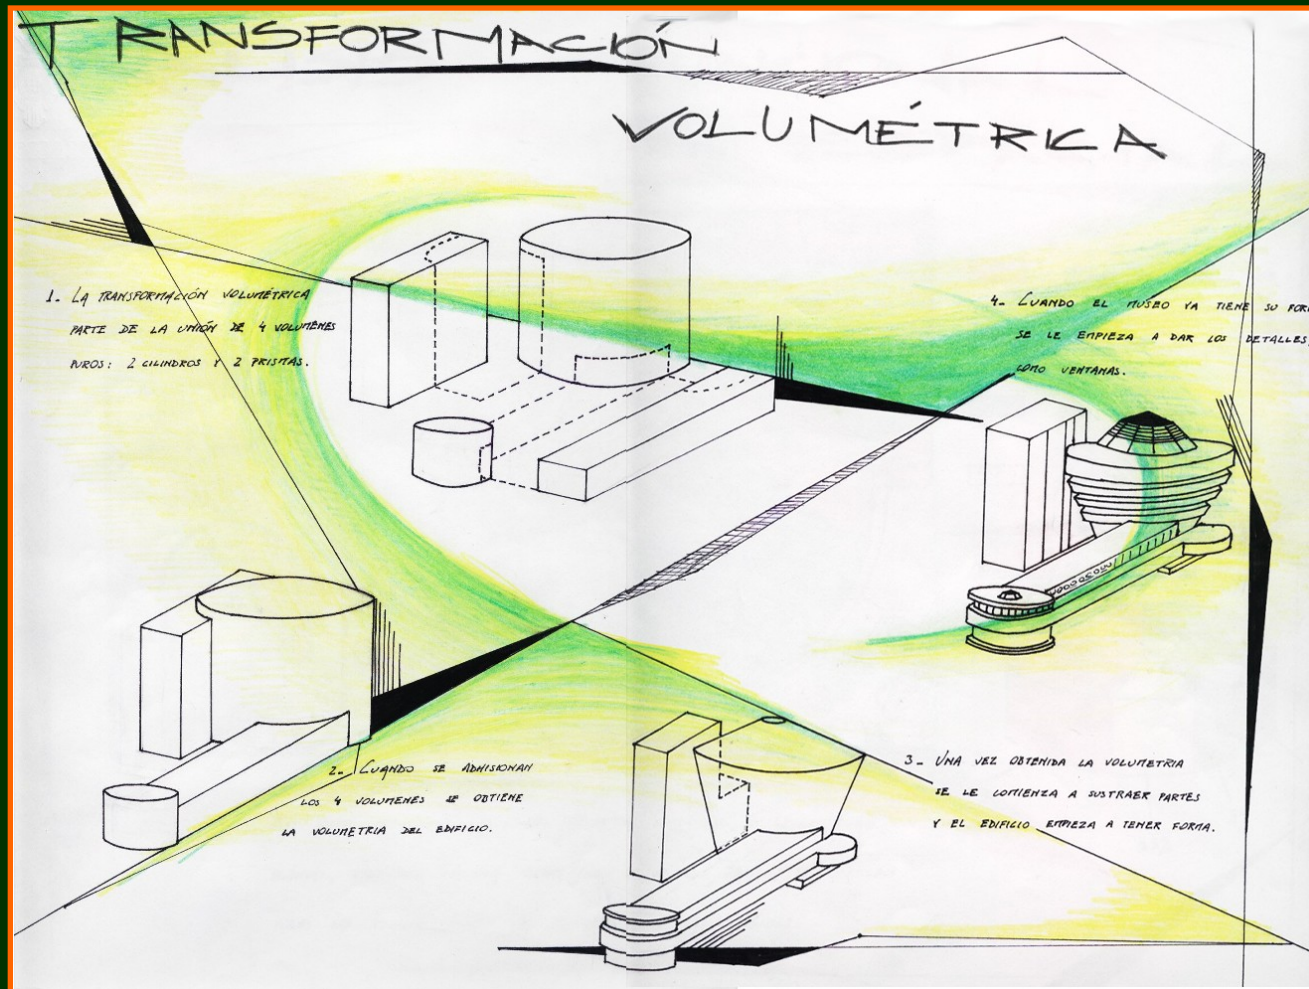 TRANSFORMACIÓN
VOLUMÉTRICA
1- LA TRANSFORMACIÓN VOLUMÉTRICA
PARTE DE LA UNIÓN DE 4 VOLUMENES
PUROS: 2 CILINDROS Y 2 PRISMAS.
4- CUANDO EL MUSEO YA TIENE SU FOR
SE LE EMPIEZA A DAR LOS DETALLES,
COMO VENTANAS.
2- CUANDO SE ADHISIONAN
LOS 4 VOLUMENES SE OBTIENE
LA VOLUMETRIA DEL EDIFICIO.
3- UNA VEZ OBTENIDA LA VOLUMETRIA
SE LE COMIENZA A SUSTRAER PARTES
Y EL EDIFICIO EMPIEZA A TENER FORMA.